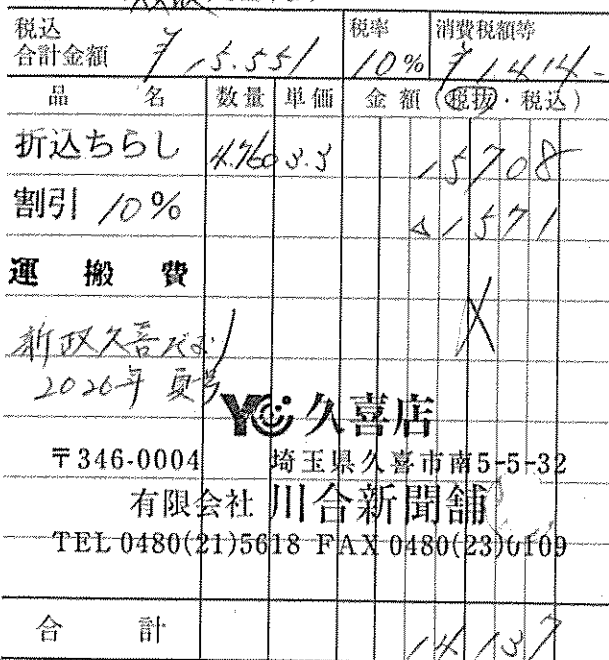 税込
合計金額 ¥15.551 税率 10% 消費税額等 ¥1414-
品 名 数量 単価 金額(税抜・税込)
折込ちらし 4.760 3.3 15708
割引 10% △1571
運搬費
2026年 夏号
YC 久喜店
〒346-0004 埼玉県久喜市南5-5-32
有限会社 川合新聞舗
TEL 0480(21)5618 FAX 0480(23)0109
合 計 14137